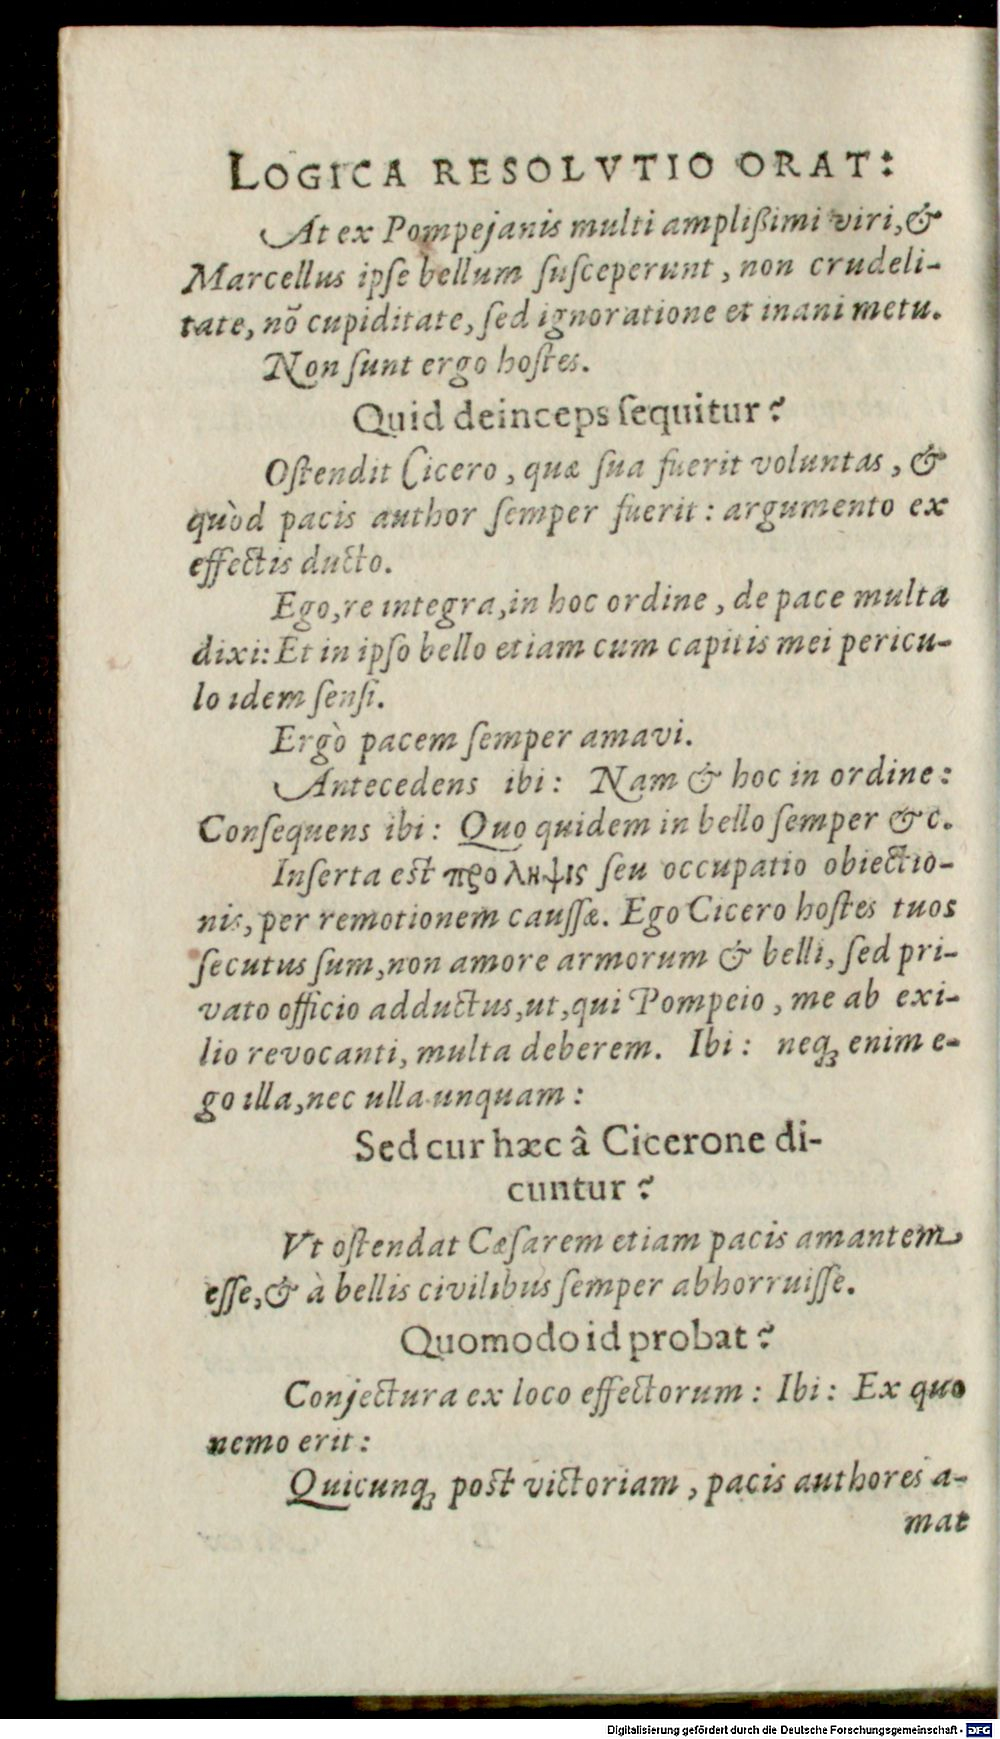 LOGICA RESOLVTIO ORAT:
At ex Pompejanis multi amplißimi viri, &
Marcellus ipſe bellum ſuſceperunt, non crudeli-
tate, nõ cupiditate, ſed ignoratione et inani metu.
Non ſunt ergo hoſtes.
Quid deinceps ſequitur?
Oſtendit Cicero, quæ ſua fuerit voluntas, &
quòd pacis author ſemper fuerit: argumento ex
effectis ducto.
Ego, re integra, in hoc ordine, de pace multa
dixi: Et in ipſo bello etiam cum capitis mei pericu-
lo idem ſenſi.
Ergò pacem ſemper amavi.
Antecedens ibi: Nam & hoc in ordine:
Conſequens ibi: Quo quidem in bello ſemper &c.
Inſerta eſt προληψις ſeu occupatio obiectio-
nis, per remotionem cauſſæ. Ego Cicero hoſtes tuos
ſecutus ſum, non amore armorum & belli, ſed pri-
vato officio adductus, ut, qui Pompeio, me ab exi-
lio revocanti, multa deberem. Ibi: neq; enim e-
go illa, nec ulla unquam:
Sed cur hæc â Cicerone di-
cuntur?
Vt oſtendat Cæſarem etiam pacis amantem
eſſe, & à bellis civilibus ſemper abhorruiſſe.
Quomodo id probat?
Conjectura ex loco effectorum: Ibi: Ex quo
nemo erit:
Quicunq; poſt victoriam, pacis authores a-
mat
Digitalisierung gefördert durch die Deutsche Forschungsgemeinschaft - DFG